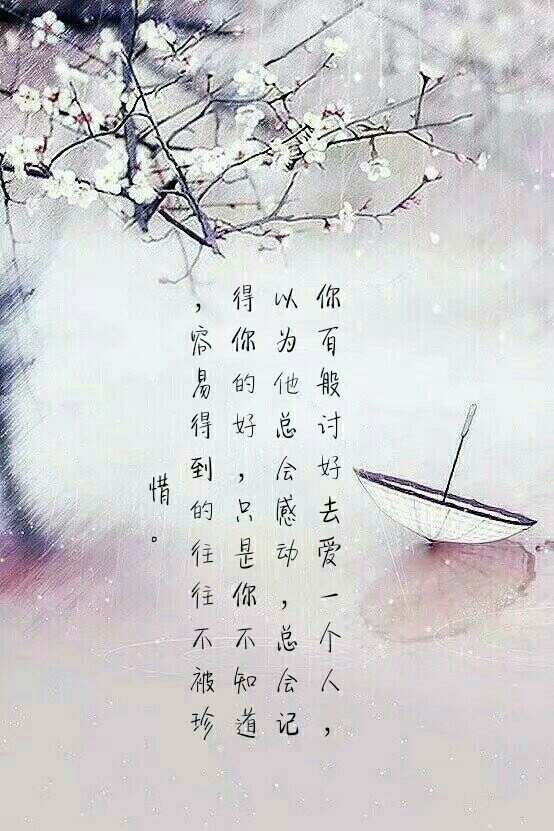 你百般讨好去爱一个人，
以为他总会感动，总会记
得你的好，只是你不知道
，容易得到的往往不被珍
惜。